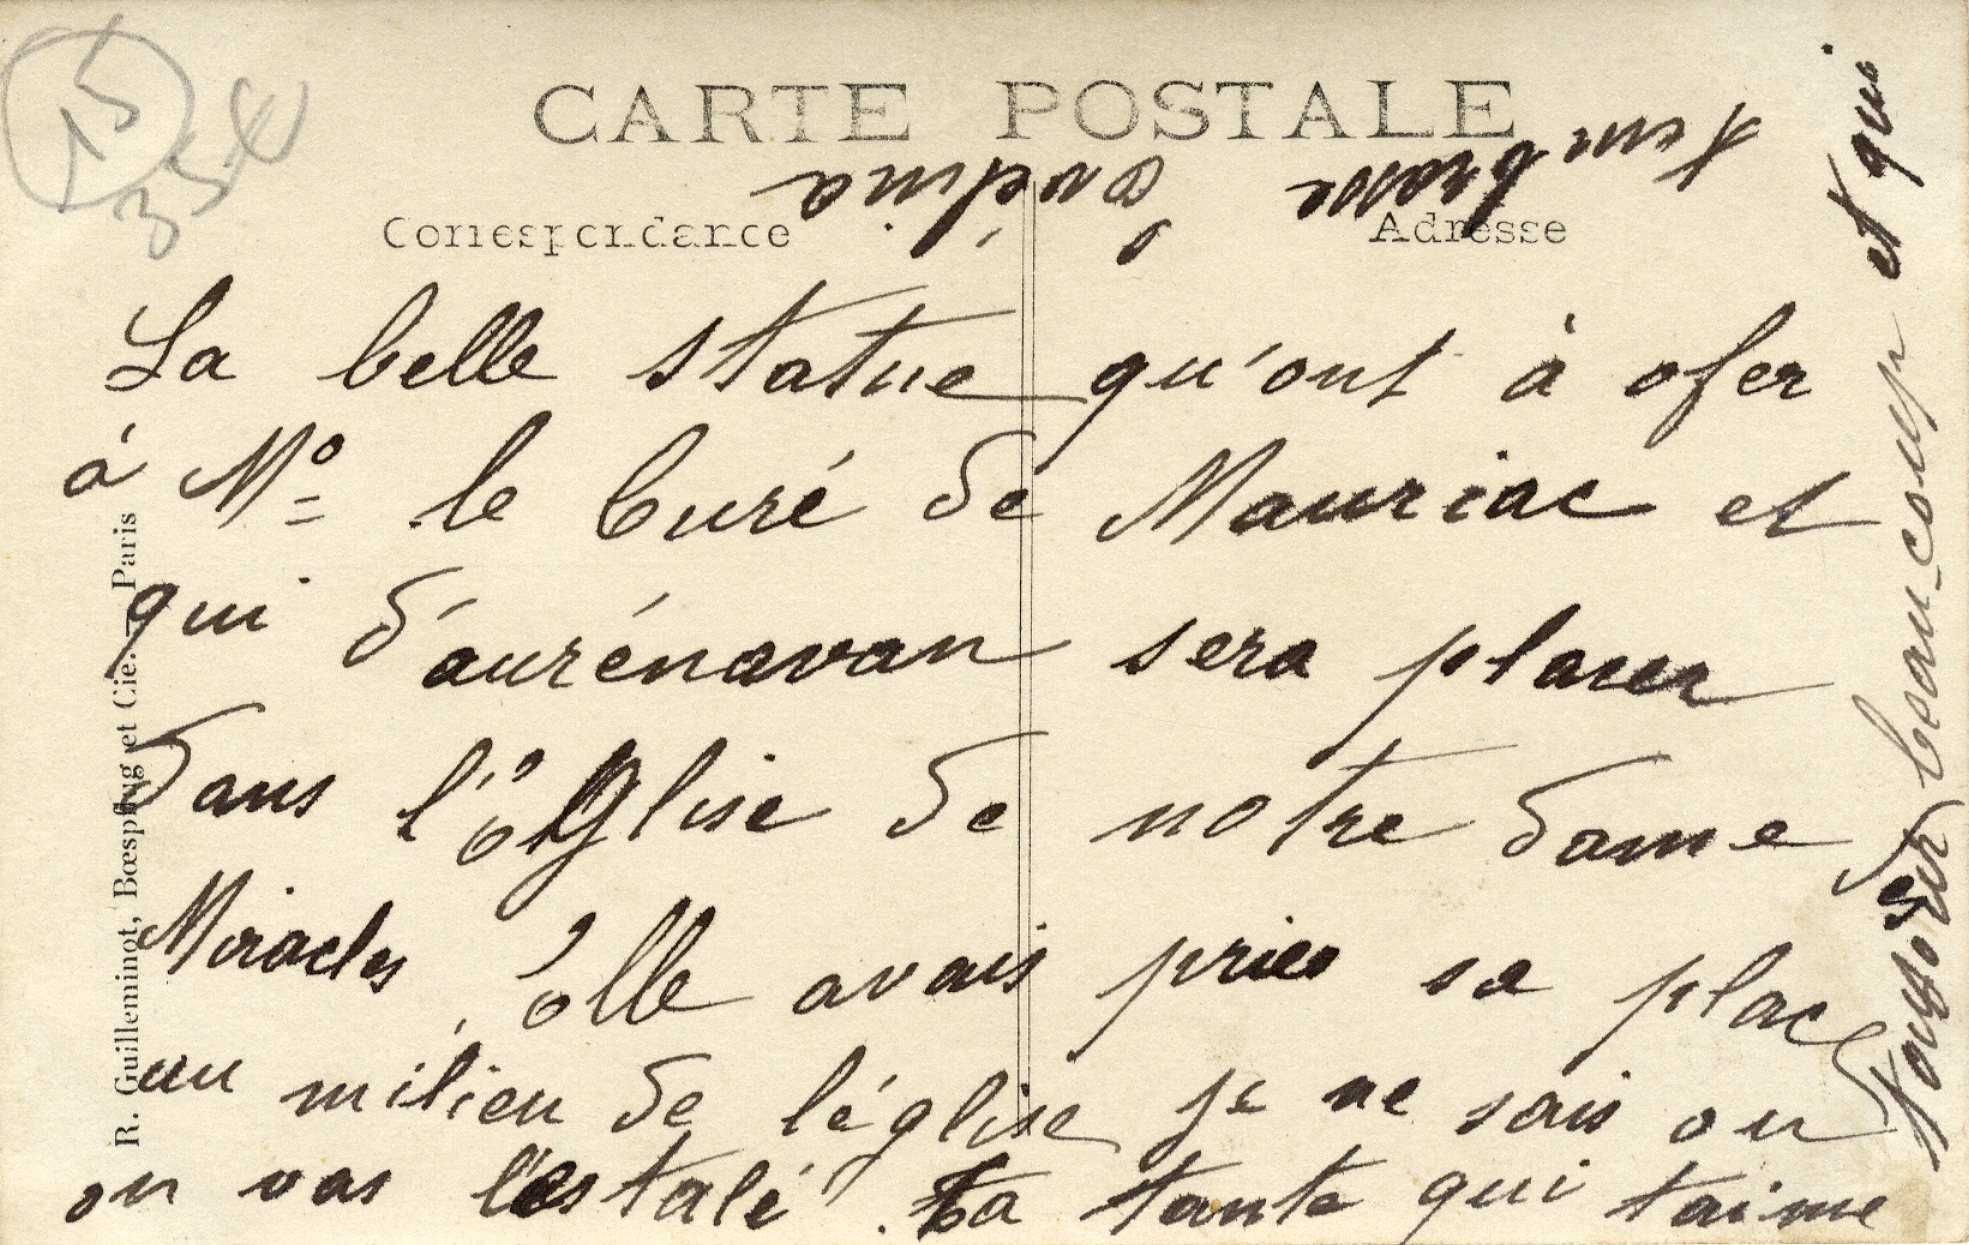 15
35€
CARTE POSTALE
Correspondance
Adresse
La belle statue qu'ont à ofer
à Mo le Curé de Mauriac et
qui d'aurénavan sera placer
dans l'église de notre dame des
Miracles, elle avais pries sa place
au milieu de l'église je ne sais ou
on vas l'éstalé. ta tante qui t'aime
toujours beau-coup et qui
R. Guilleminot, Bœspflug et Cie. - Paris